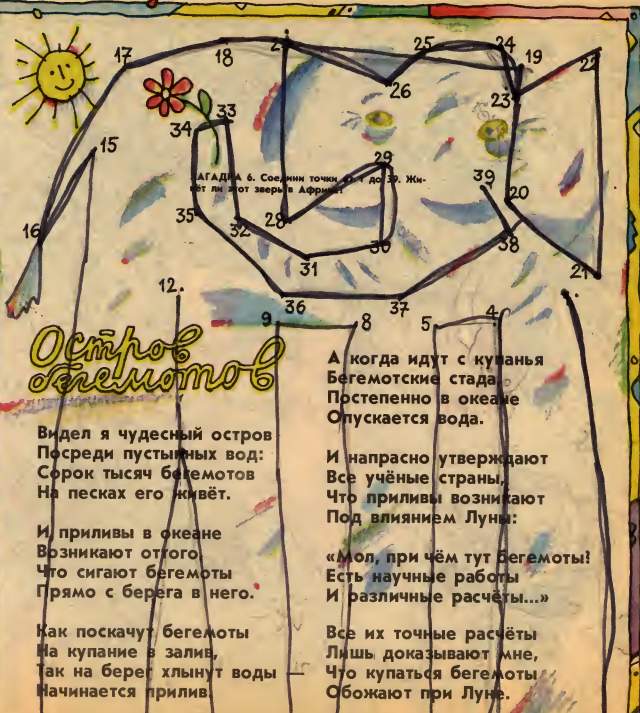 17
18
2
25
24
19
22
26
23
15
34
33
ЗАГАДКА 6. Соедини точки от 1 до 39. Жи-
вёт ли этот зверь в Африке?
29
39
20
35
32
28
30
38
16
31
21
12
36
37
9
8
5
4
Остров
бегемотов
Видел я чудесный остров
Посреди пустынных вод:
Сорок тысяч бегемотов
На песках его живёт.
И приливы в океане
Возникают оттого,
Что сигают бегемоты
Прямо с берега в него.
Как поскачут бегемоты
На купание в залив,
Так на берег хлынут воды —
Начинается прилив.
А когда идут с купанья
Бегемотские стада,
Постепенно в океане
Опускается вода.
И напрасно утверждают
Все учёные страны,
Что приливы возникают
Под влиянием Луны:
«Мол, при чём тут бегемоты?
Есть научные работы
И различные расчёты...»
Все их точные расчёты
Лишь доказывают мне,
Что купаться бегемоты
Обожают при Луне.